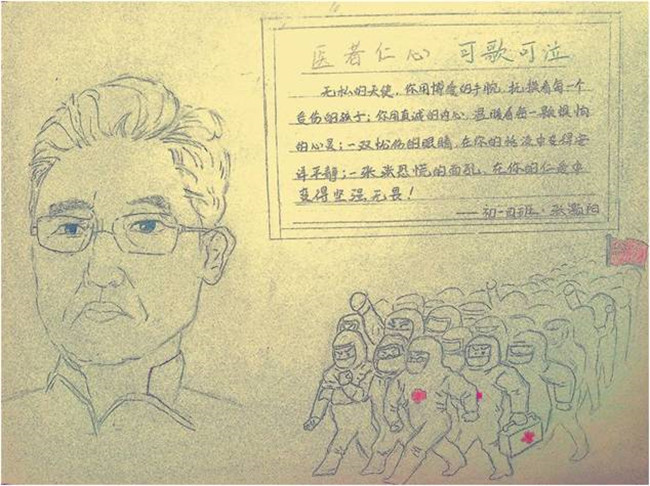 医者仁心 可歌可泣
无私的天使，你用博爱的手腕，抚摸着每一个
受伤的孩子；你用真诚的内心，温暖着每一颗惧怕
的心灵；一双双忧伤的眼睛，在你的抚慰中变得安
详平静；一张张恐慌的面孔，在你的仁爱中
变得坚强无畏！
——初一四班·张瀚阳